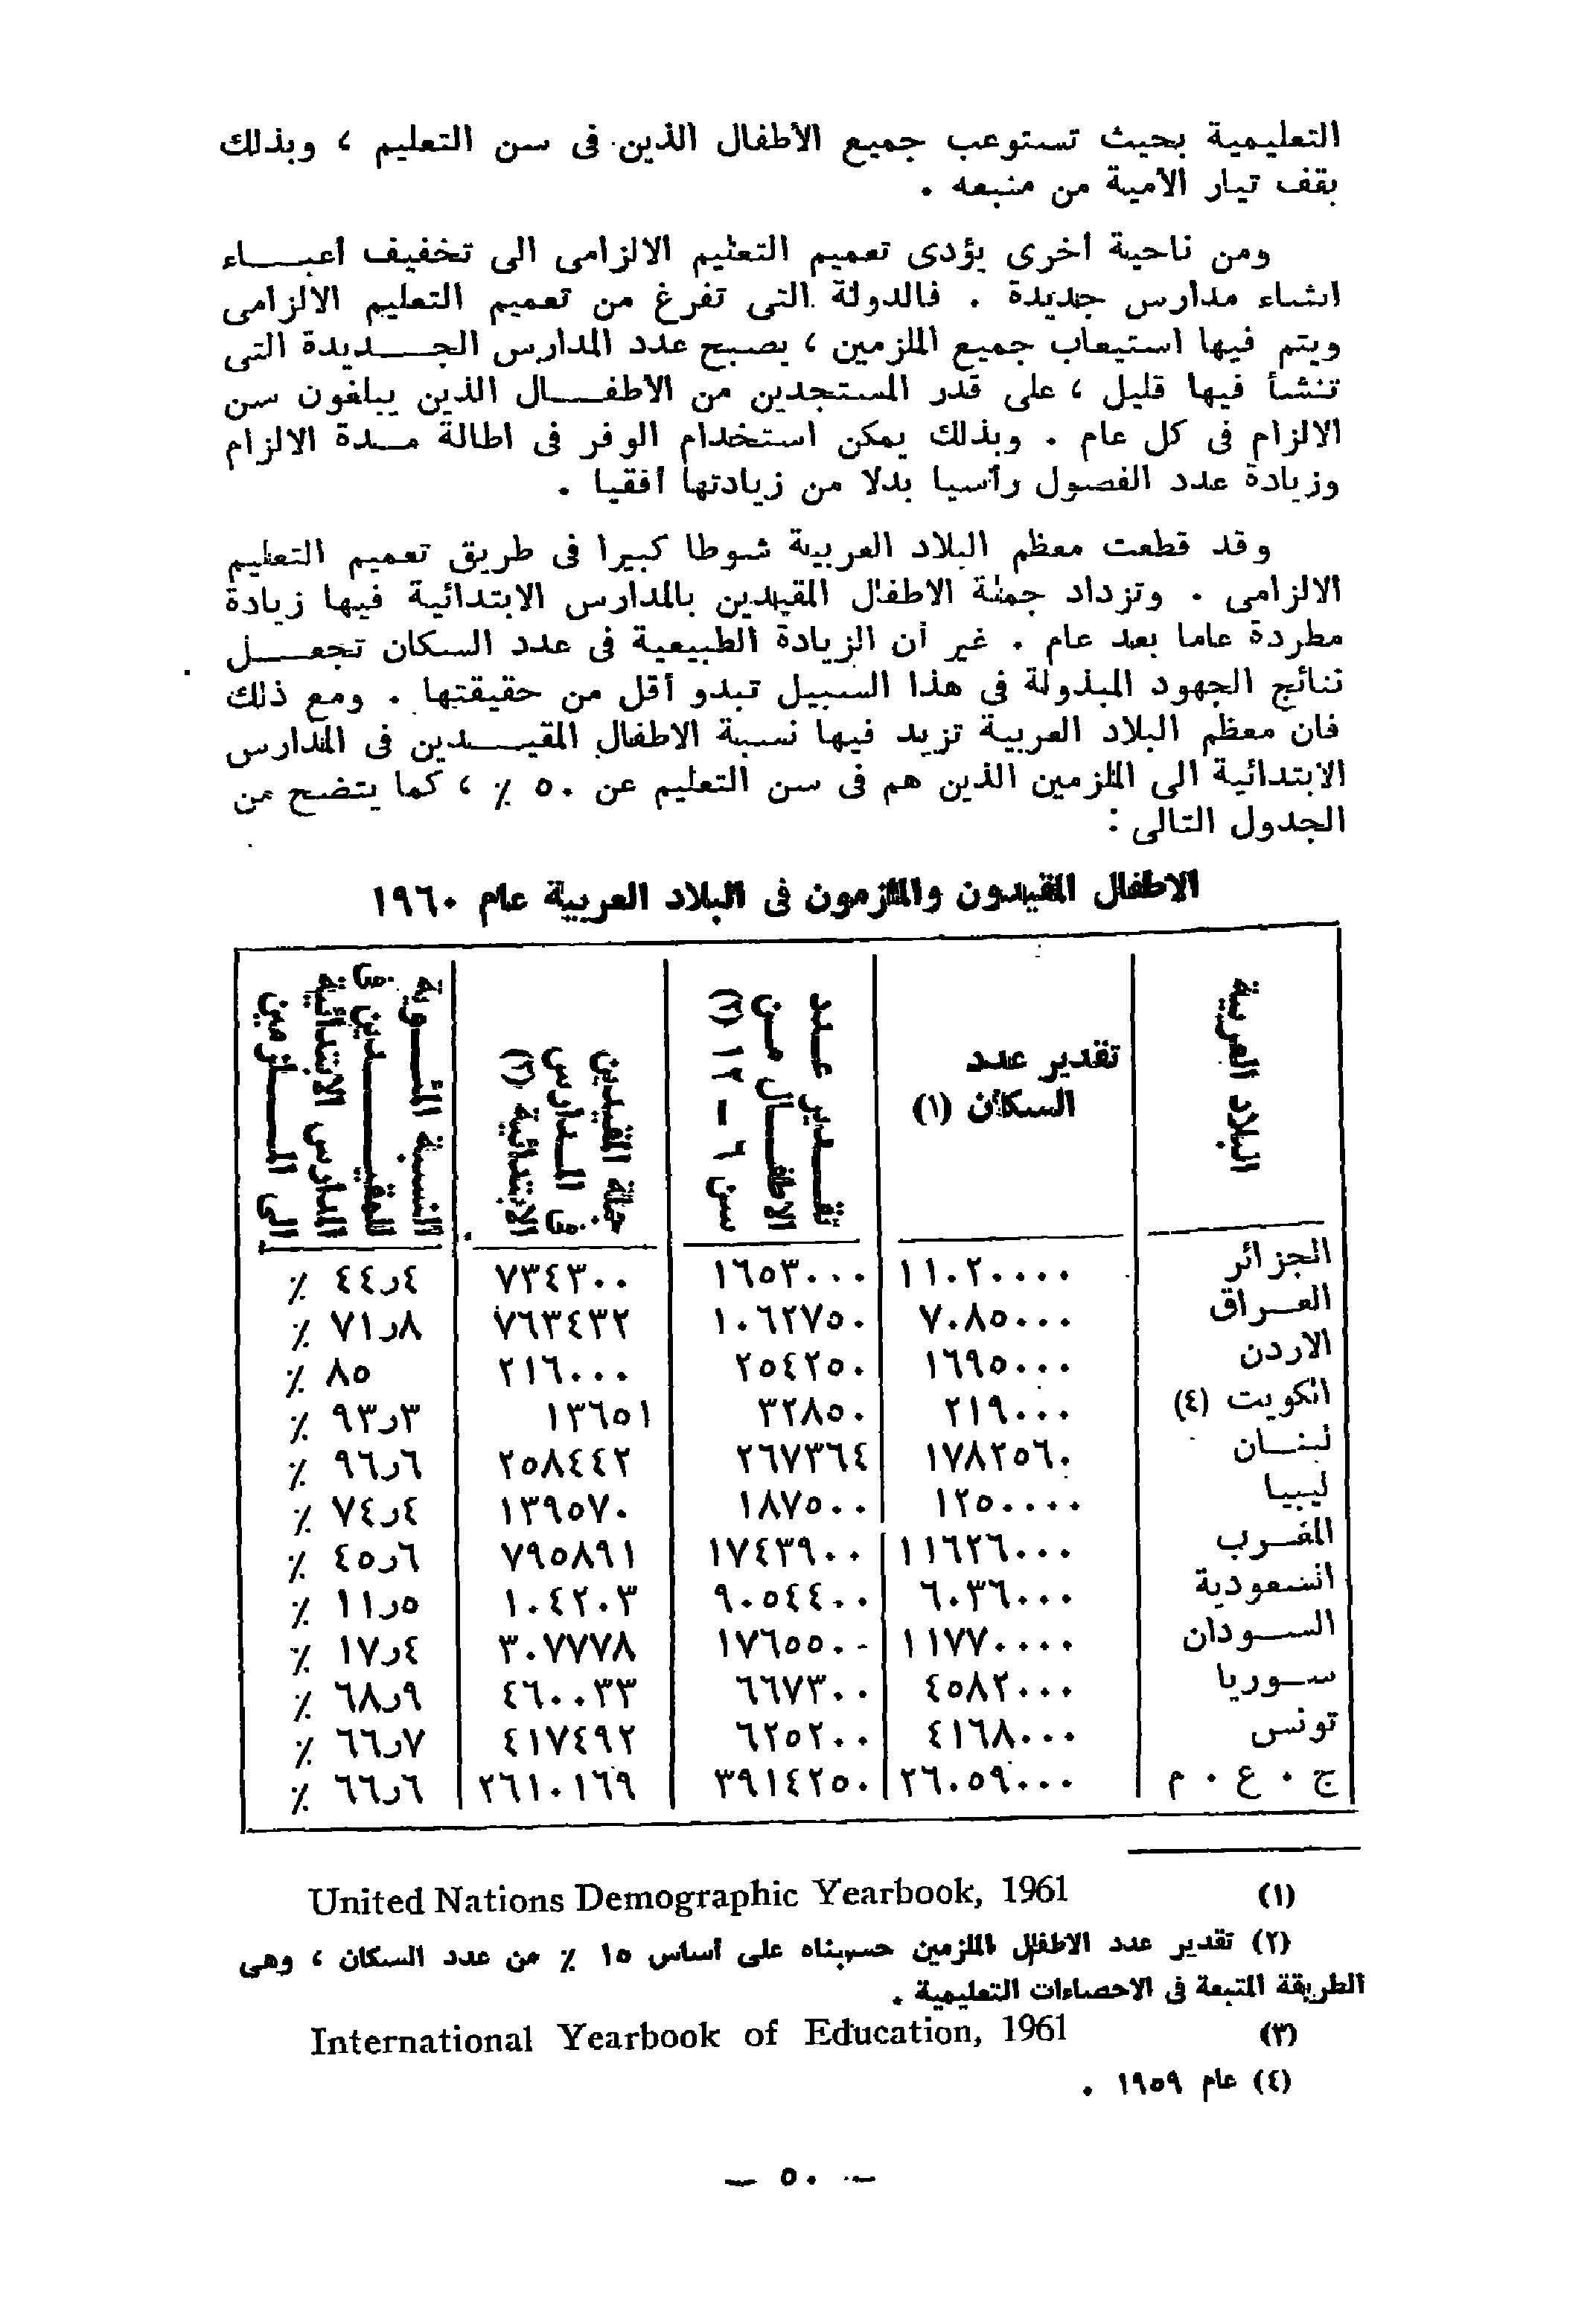 التعليمية بحيث تستوعب جميع الأطفال الذين فى سن التعليم ، وبذلك
يقف تيار الأمية من منبعه .
ومن ناحية أخرى يؤدى تعميم التعليم الالزامى الى تخفيف أعبـــاء
انشاء مدارس جديدة . فالدولة التى تفرغ من تعميم التعليم الالزامى
ويتم فيها استيعاب جميع الملزمين ، يصبح عدد المدارس الجـــديدة التى
تنشأ فيها قليل ، على قدر المستجدين من الاطفـــال الذين يبلغون سن
الالزام فى كل عام . وبذلك يمكن استخدام الوفر فى اطالة مــدة الالزام
وزيادة عدد الفصول رأسيا بدلا من زيادتها أفقيا .
وقد قطعت معظم البلاد العربية شوطا كبيرا فى طريق تعميم التعليم
الالزامى . وتزداد جملة الاطفال المقيدين بالمدارس الابتدائية فيها زيادة
مطردة عاما بعد عام . غير أن الزيادة الطبيعية فى عدد السكان تجعـــل
نتائج الجهود المبذولة فى هذا السبيل تبدو أقل من حقيقتها . ومع ذلك
فان معظم البلاد العربية تزيد فيها نسبة الاطفال المقيـــدين فى المدارس
الابتدائية الى الملزمين الذين هم فى سن التعليم عن ٥٠ ٪ ، كما يتضح من
الجدول التالى :
الاطفال المقيدون والملزمون فى البلاد العربية عام ١٩٦٠
البلاد العربية
تقدير عدد
السكان (١)
تقــدير عــدد
الاطفــال مــن
سن ٦ – ١٢ (٢)
جملة المقيدين
فى المــدارس
الابتدائية (٣)
النسبة المئــوية
للمقيــــدين فى
المدارس الابتدائية
الى الملــــزمين
الجزائر ١١٠٢٠٠٠٠ ١٦٥٣٠٠٠ ٧٣٤٣٠٠ ٤ر٤٤ ٪
العــراق ٧٠٨٥٠٠٠ ١٠٦٢٧٥٠ ٧٦٣٤٣٢ ٨ر٧١ ٪
الاردن ١٦٩٥٠٠٠ ٢٥٤٢٥٠ ٢١٦٠٠٠ ٨٥ ٪
الكويت (٤) ٢١٩٠٠٠ ٣٢٨٥٠ ١٣٦٥١ ٣ر٩٣ ٪
لبنــان ١٧٨٢٥٦٠ ٢٦٧٣٦٤ ٢٥٨٤٤٢ ٦ر٩٦ ٪
ليبيا ١٢٥٠٠٠٠ ١٨٧٥٠٠ ١٣٩٥٧٠ ٤ر٧٤ ٪
المغــرب ١١٦٢٦٠٠٠ ١٧٤٣٩٠٠ ٧٩٥٨٩١ ٦ر٤٥ ٪
السعودية ٦٠٣٦٠٠٠ ٩٠٥٤٤٠٠ ١٠٤٢٠٣ ٥ر١١ ٪
الســودان ١١٧٧٠٠٠٠ ١٧٦٥٥٠٠ ٣٠٧٧٧٨ ٤ر١٧ ٪
ســوريا ٤٥٨٢٠٠٠ ٦٦٧٣٠٠ ٤٦٠٠٣٣ ٩ر٦٨ ٪
تونس ٤١٦٨٠٠٠ ٦٢٥٢٠٠ ٤١٧٤٩٢ ٧ر٦٦ ٪
ج . ع . م ٢٦٠٥٩٠٠٠ ٣٩١٤٢٥٠ ٢٦١٠١٦٩ ٦ر٦٦ ٪
(١) United Nations Demographic Yearbook, 1961
(٢) تقدير عدد الاطفال الملزمين حسبناه على أساس ١٥ ٪ من عدد السكان ، وهى
الطريقة المتبعة فى الاحصاءات التعليمية .
(٣) International Yearbook of Education, 1961
(٤) عام ١٩٥٩ .
— ٥٠ —